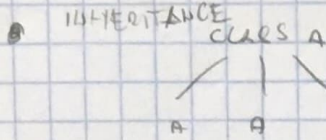 INHERITANCE
CLASS A
A A